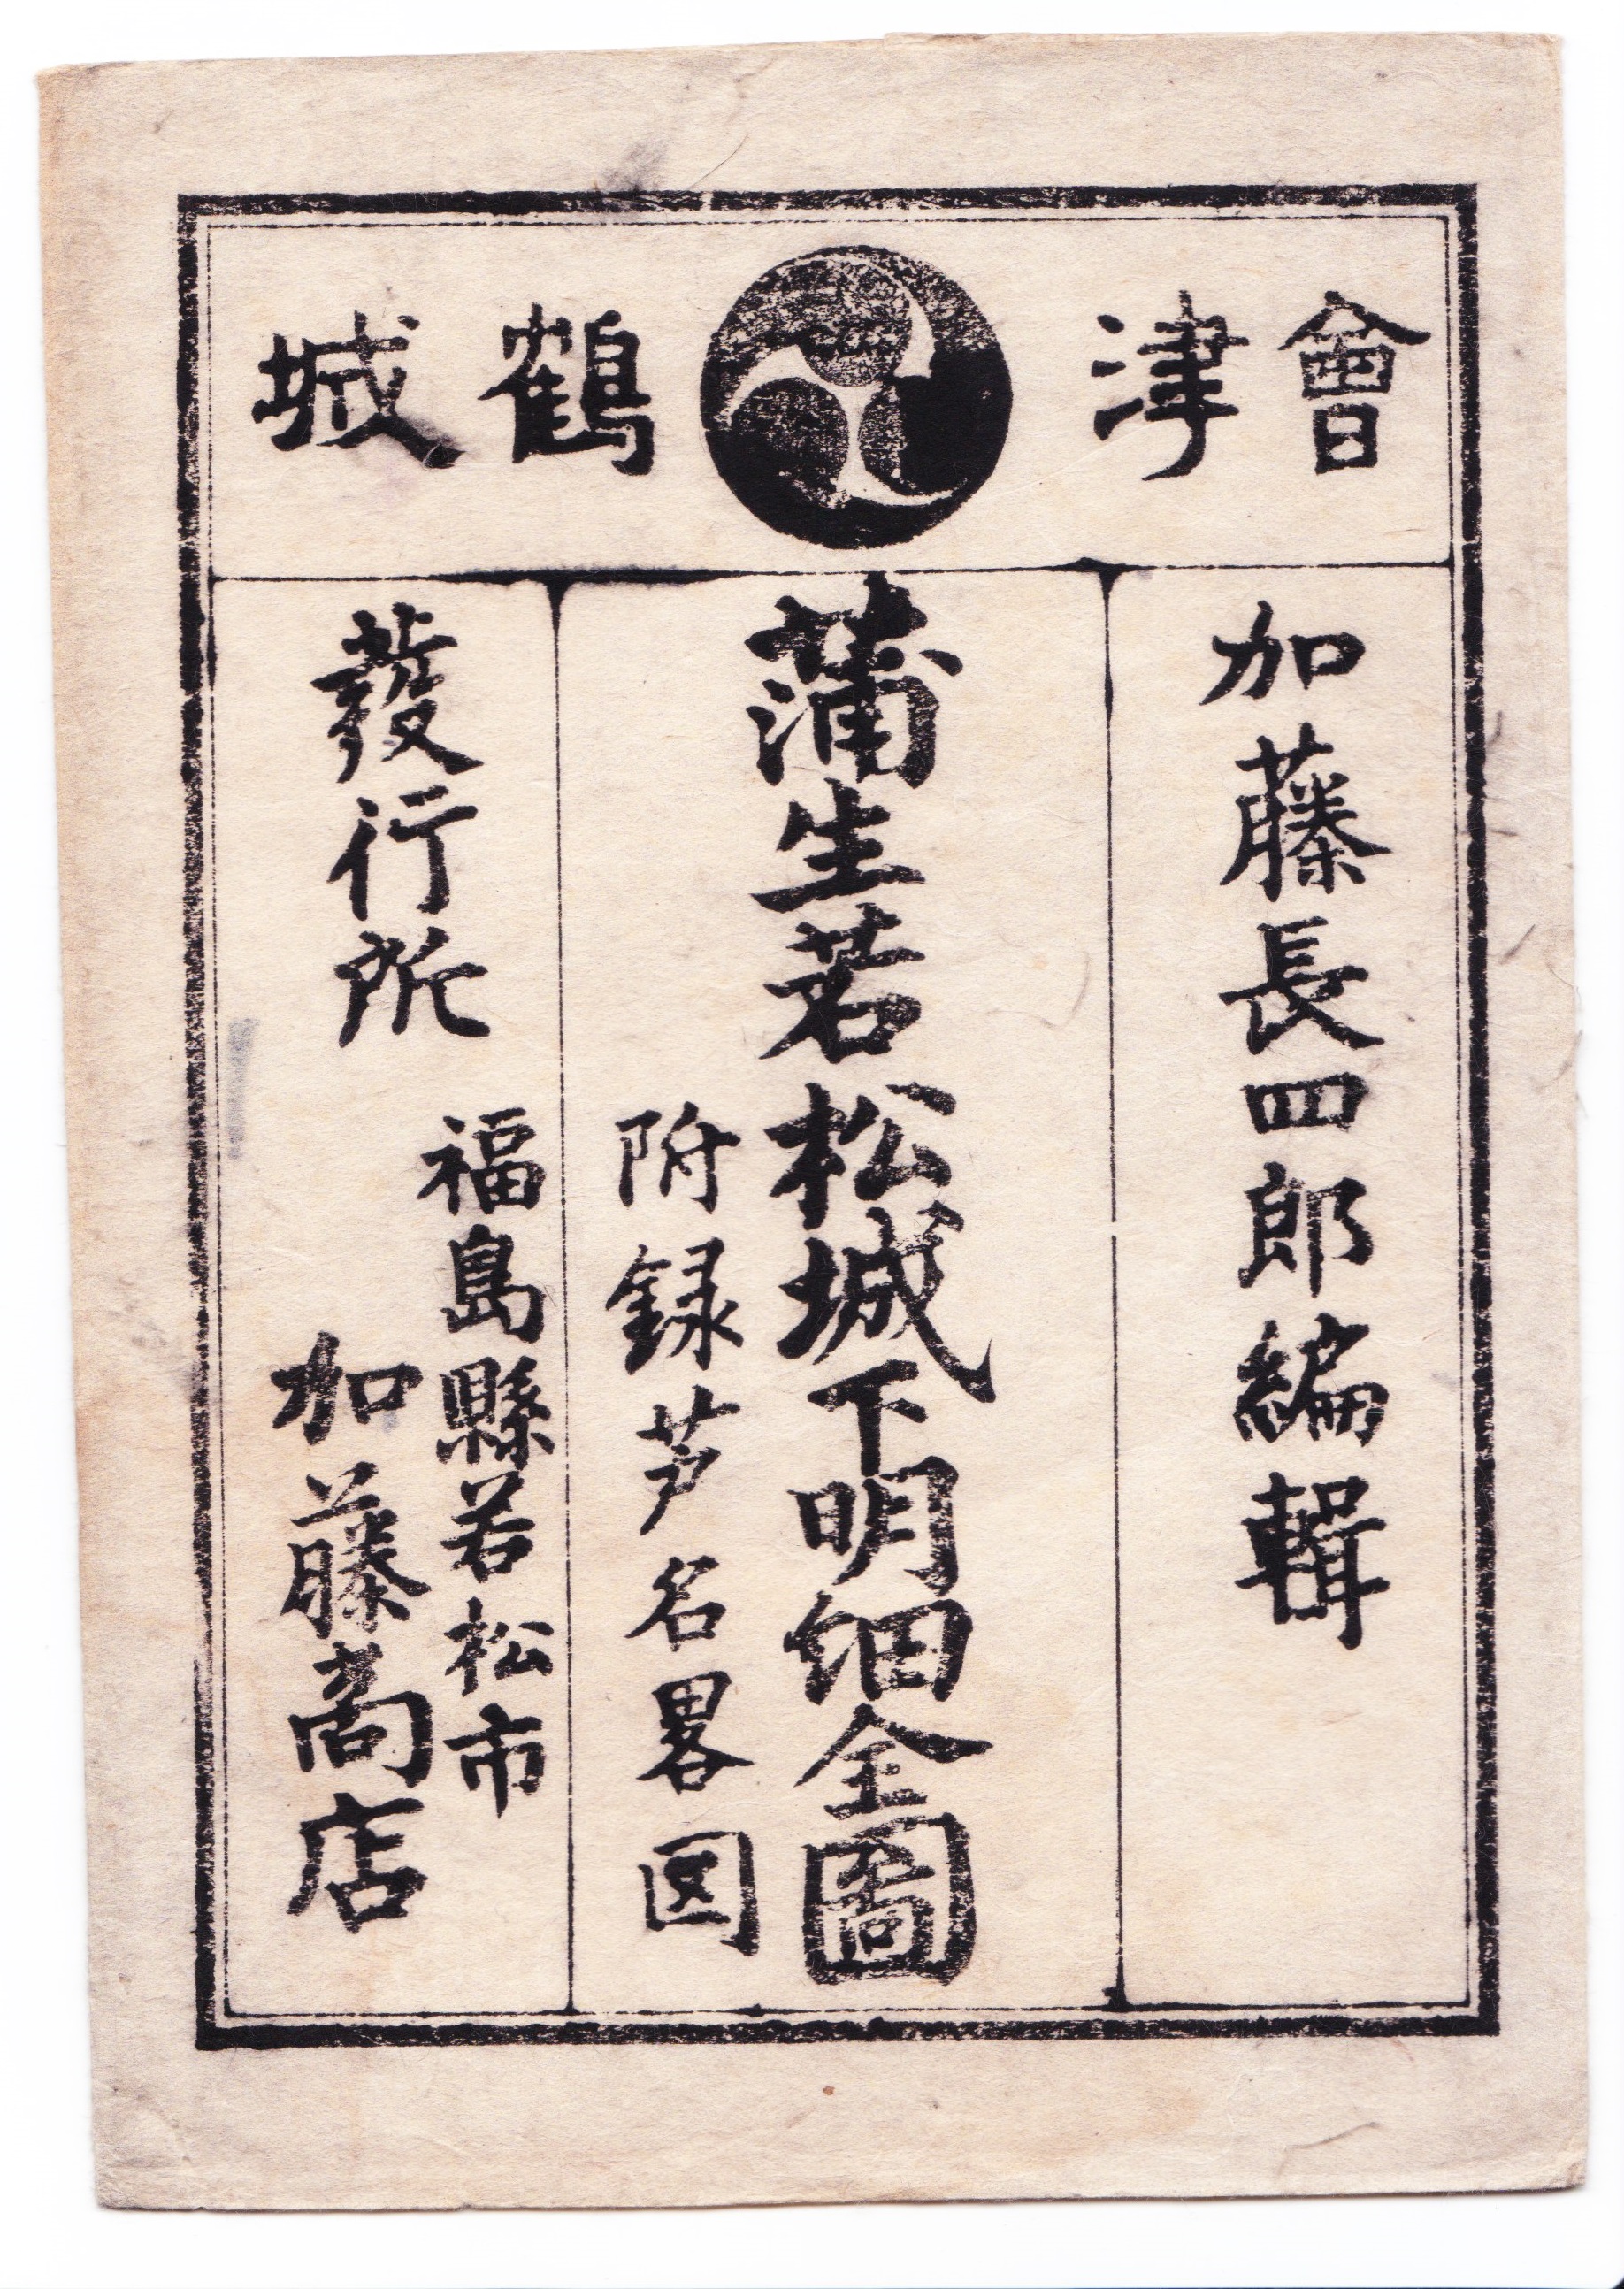 會津鶴城
加藤長四郎編輯
蒲生若松城下明細全圖
附録芦名畧図
發行所
福島縣若松市
加藤商店